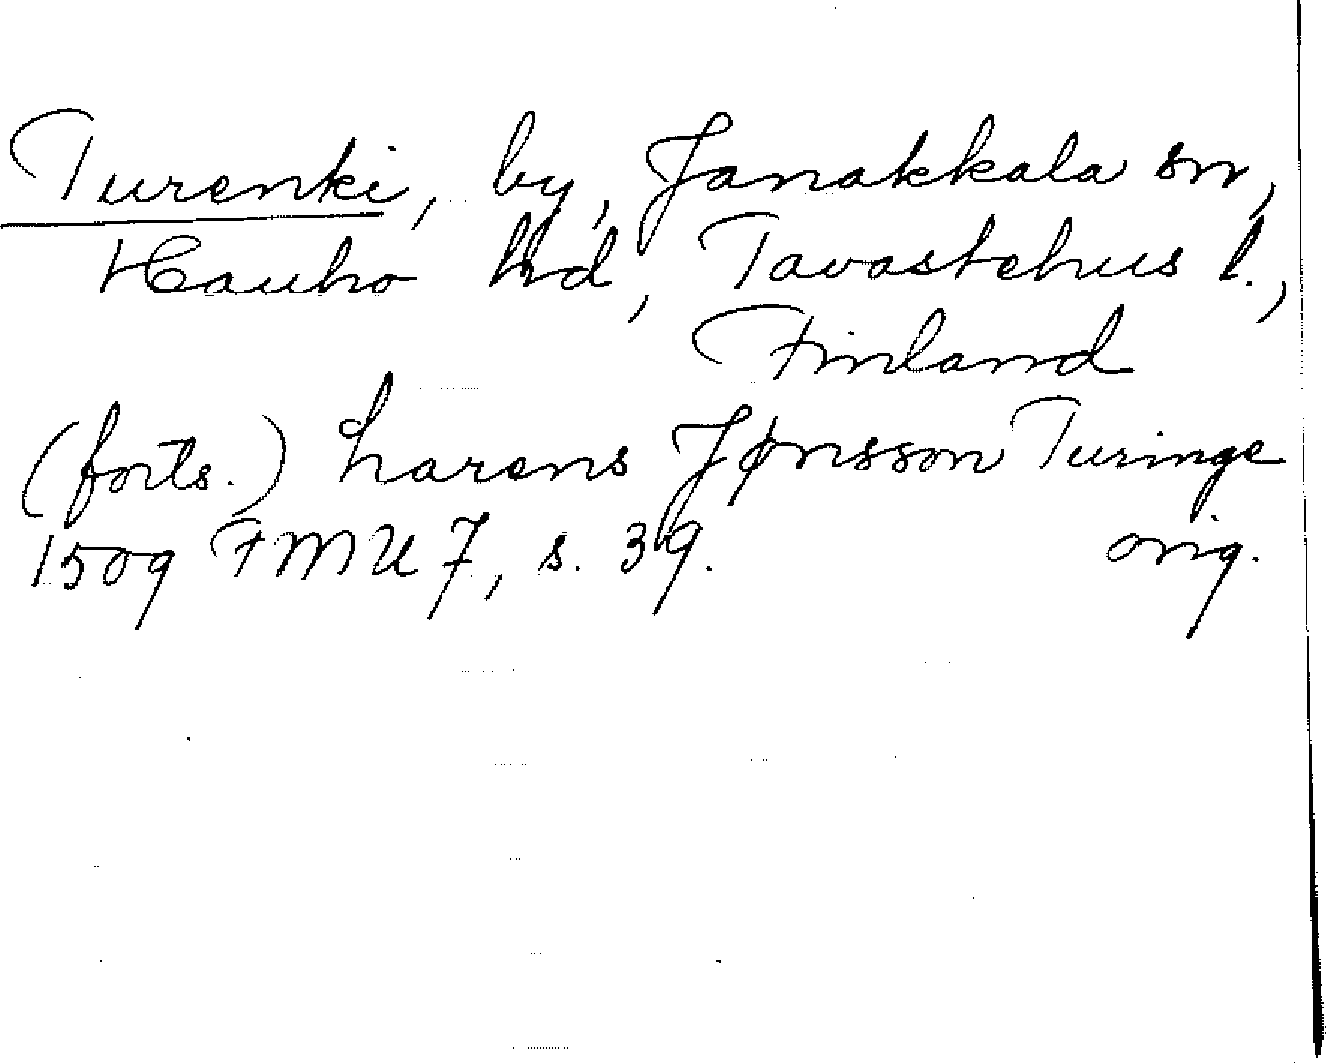 Turenki, by, Janakkala sn,
Hauho hd, Tavastehus l.,
Finland
(forts.) Larens Jønsson Turinge
1509 FMU 7, s. 39. orig.